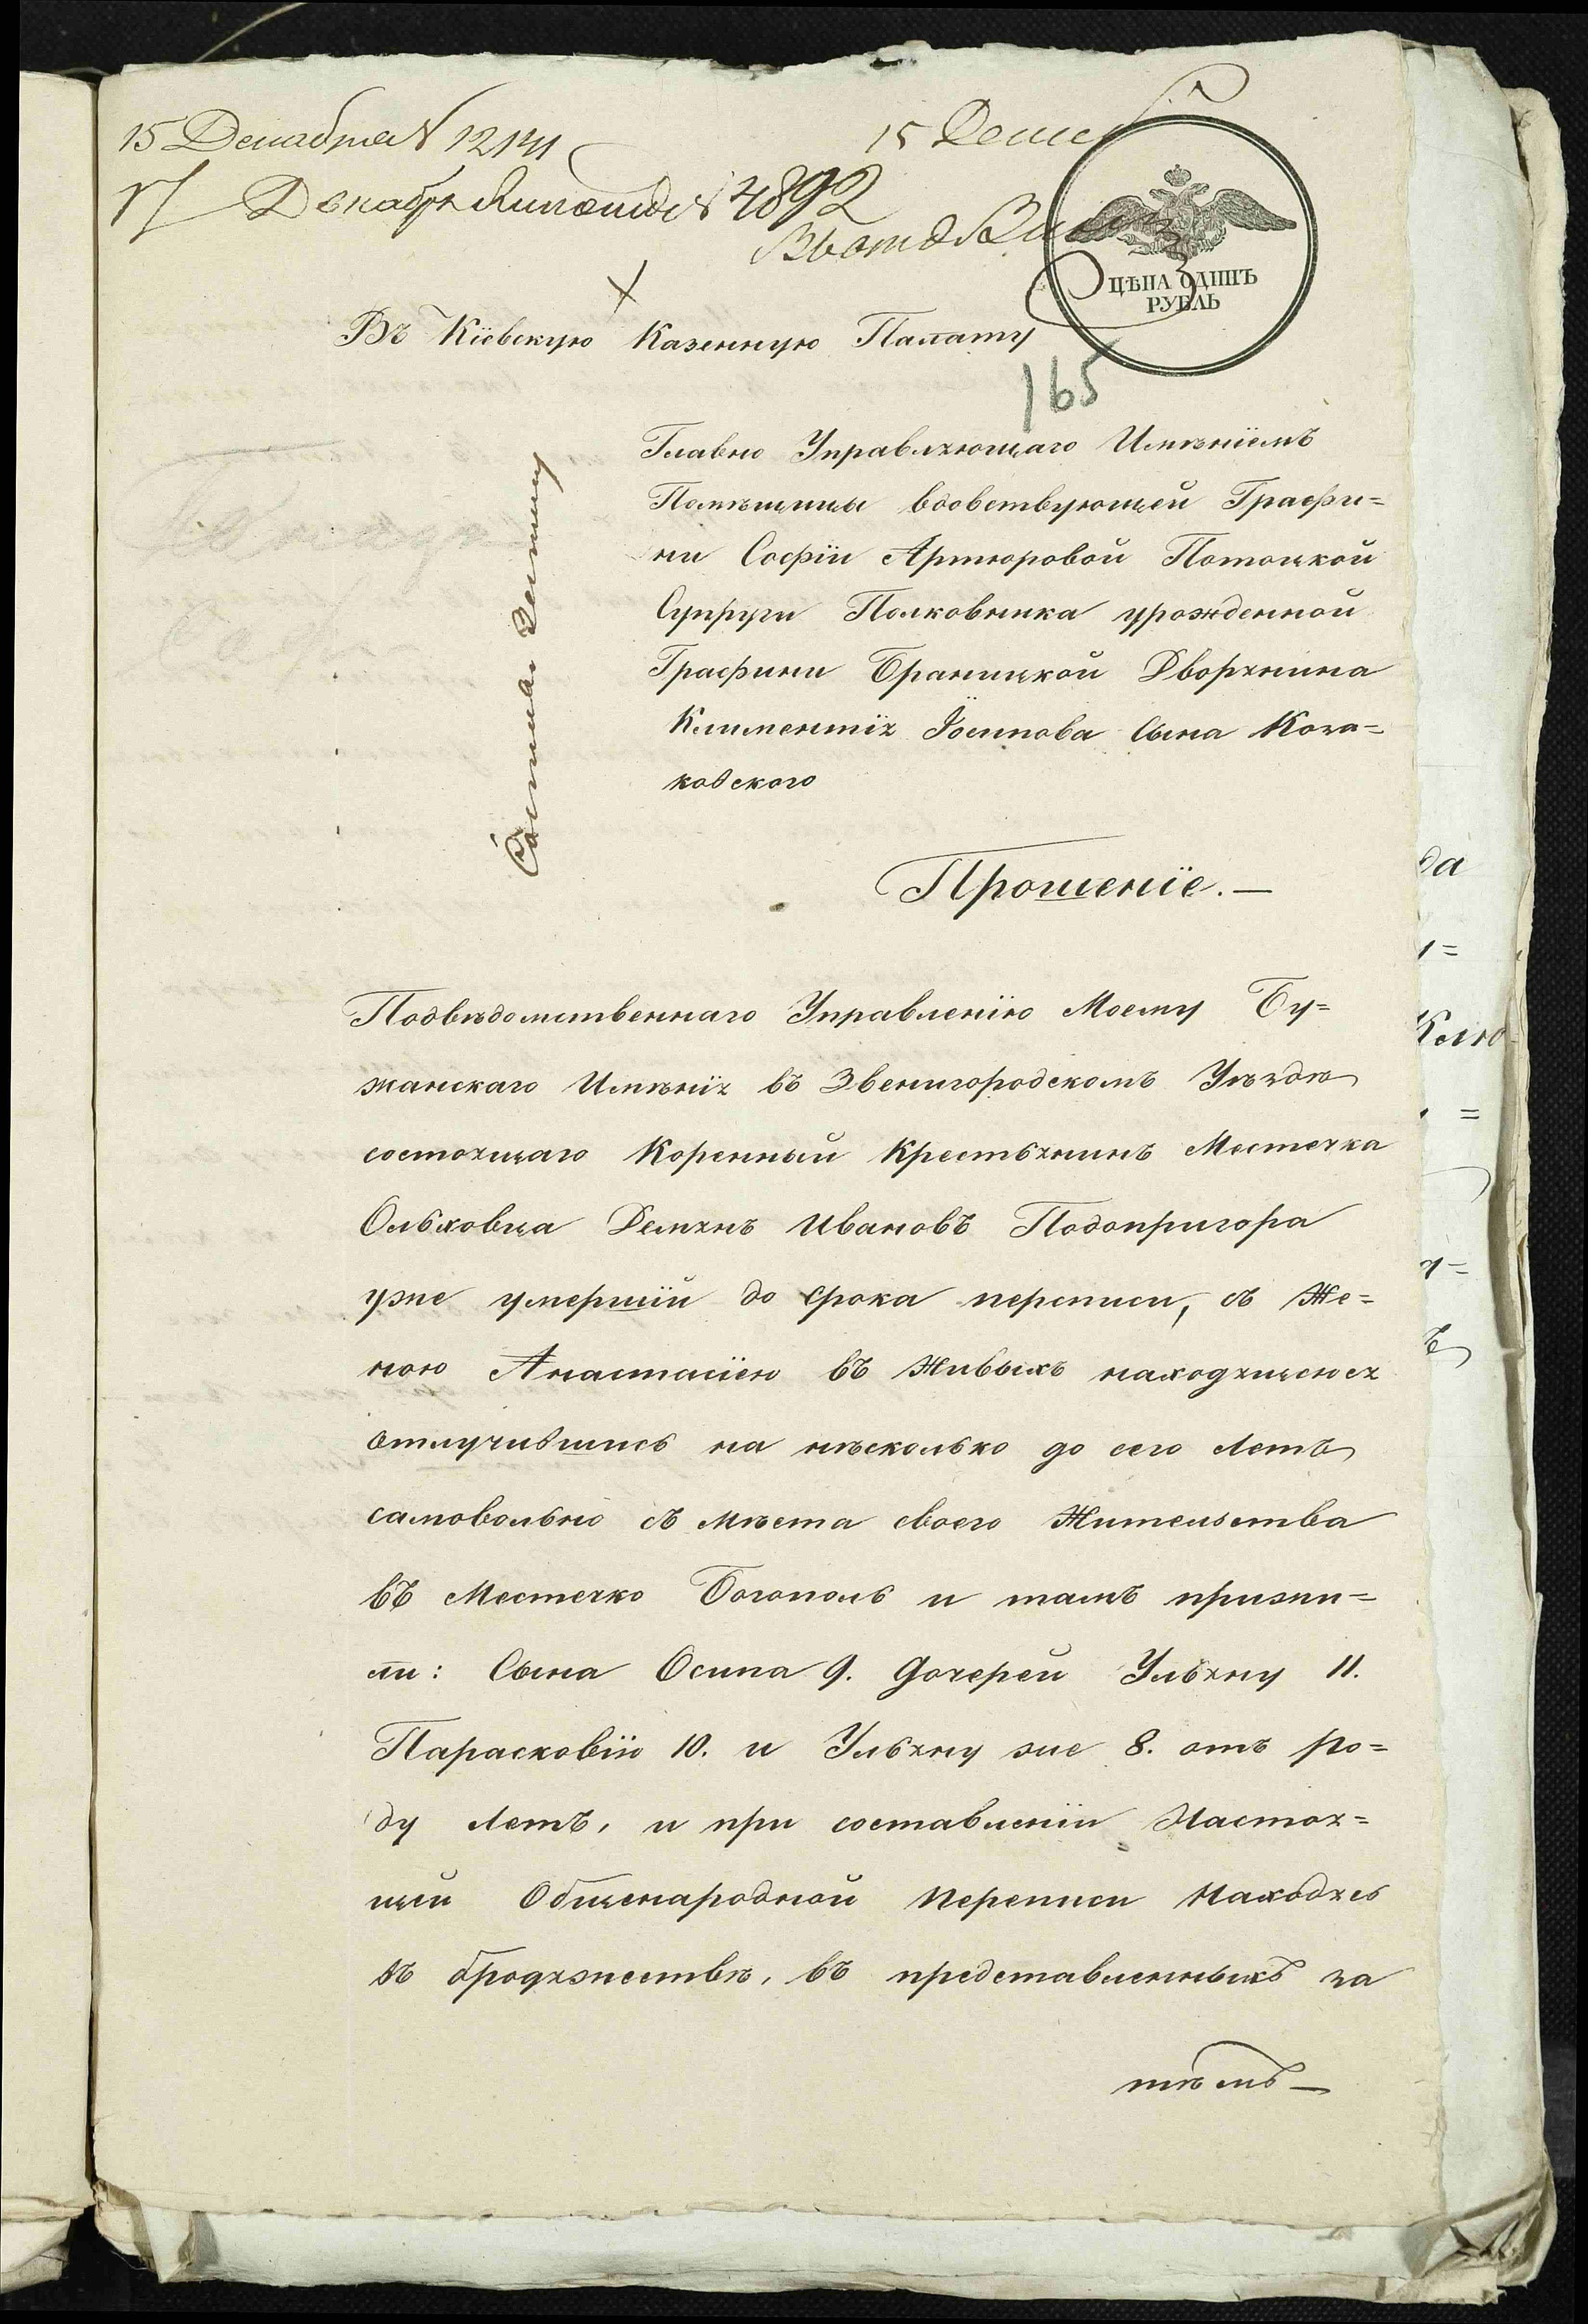 15 Декабря № 12141
15 Декаб
17 Декабря № 4892
ЦѢНА ОДИНЪ
РУБЛЬ
Въ Кіевскую Казенную Палату
165
Главно Управляющаго Имѣніемъ
Помѣщицы вдовствующей Графи=
ни Софіи Артюровой Потоцкой
Супруги Полковника урожденной
Графини Браницкой Дворянина
Климентія Іосипова Сына Коча=
ковского
Прошеніе.—
Подвѣдомственнаго Управленію Моему Бу=
жанскаго Имѣнія въ Звенигородскомъ Уѣздѣ
состоящаго Коренный Крестьянинъ Местечка
Ольховца Демянъ Ивановъ Подопригора
уже умершій до срока переписи, съ Же=
ною Анастасіею въ Живыхъ находящеюся
отлучившись на нѣсколько до сего Летъ
самовольно съ мѣста своего Жительства
въ Местечко Богополь и тамъ прижи=
ли: Сына Осипа 9. дочерей Ульяну 11.
Парасковію 10. и Ульяну же 8. отъ ро=
ду Летъ, и при составленіи Настоя=
щей Общенародной Переписи Находясь
въ бродяжествѣ, въ представленныхъ за
тѣмъ—